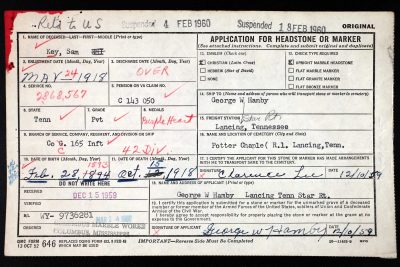 Ret. to US
Suspended 4 FEB 1960
Suspended 18 FEB 1960
ORIGINAL
1. NAME OF DECEASED—LAST—FIRST—MIDDLE (Print or type)
Key, Sam
APPLICATION FOR HEADSTONE OR MARKER
(See attached instructions. Complete and submit original and duplicate)
2. ENLISTMENT DATE (Month, Day, Year)
MAY 24 1918
3. DISCHARGE DATE (Month, Day, Year)
OVER
11. EMBLEM
CHRISTIAN (Latin Cross)
HEBREW (Star of David)
NONE
12. CHECK TYPE REQUIRED
UPRIGHT MARBLE HEADSTONE
FLAT MARBLE MARKER
FLAT GRANITE MARKER
FLAT BRONZE MARKER
4. SERVICE NO.
2868,567
5. PENSION OR VA CLAIM NO.
C 143 050
14. SHIP TO (Name and address of person who will transport stone or marker to cemetery)
George W Hamby
6. STATE
Tenn
7. GRADE
Pvt
8. MEDALS
Purple Heart
15. FREIGHT STATION
Lancing, Tennessee
9. BRANCH OF SERVICE, COMPANY, REGIMENT, DIVISION OR SHIP
Co G. 165 Inft
C 42 Div.
16. NAME AND LOCATION OF CEMETERY (City and State)
Potter Chaple (R.1, Lancing, Tenn.
10. DATE OF BIRTH (Month, Day, Year)
1893
Feb. 28, 1894
DATE OF DEATH (Month, Day, Year)
oct. 1918
I CERTIFY THE APPLICANT FOR THIS STONE OR MARKER HAS MADE ARRANGEMENTS WITH ME TO TRANSPORT SAME TO THE CEMETERY.
Clarence Lee 12/10/59
DO NOT WRITE HERE
DEC 15 1959
NAME AND ADDRESS OF APPLICANT (Print or type)
George W Hamby Lancing Tenn Star Rt.
WY- 9736281
COLUMBUS MARBLE WORKS
COLUMBUS, MISSISSIPPI
I certify this application is submitted for a stone or marker for the unmarked grave of a deceased member or former member of the Armed Forces of the United States, soldier of the Union or Confederate Armies
George W Hamby 12/10/59
QMC FORM 13 OCT 52 046
REPLACES OQMG FORM 623, 9 FEB 48 WHICH MAY BE USED
IMPORTANT—Reverse Side Must Be Completed